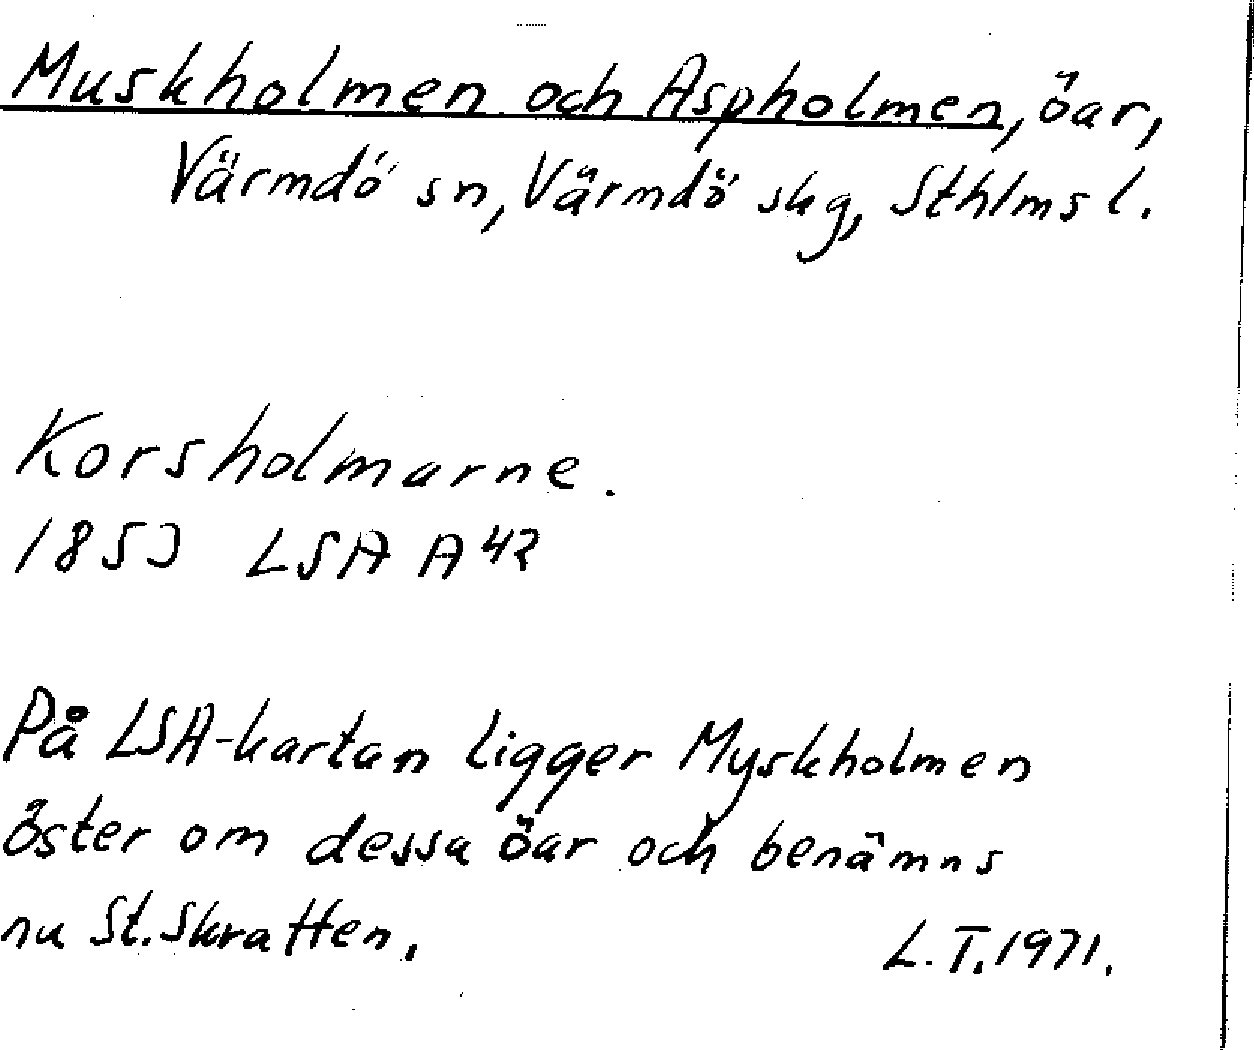 Muskholmen och Aspholmen, öar,
Värmdö sn, Värmdö skg, Sthlms l.
Korsholmarne.
1853 LSA A42
På LSA-kartan ligger Myskholmen
öster om dessa öar och benämns
nu St. Skratten.
L.T. 1971.